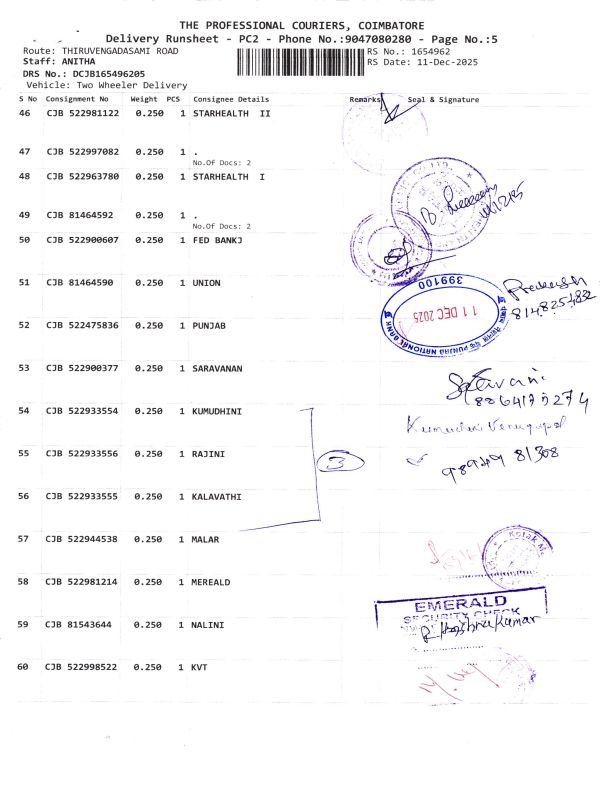 THE PROFESSIONAL COURIERS, COIMBATORE
Delivery Runsheet - PC2 - Phone No.:9047080280 - Page No.:5
Route: THIRUVENGADASAMI ROAD
RS No.: 1654962
Staff: ANITHA
RS Date: 11-Dec-2025
DRS No.: DCJB165496205
Vehicle: Two Wheeler Delivery
S No Consignment No Weight PCS Consignee Details Remarks Seal & Signature
46 CJB 522981122 0.250 1 STARHEALTH II
47 CJB 522997082 0.250 1 .
No.Of Docs: 2
48 CJB 522963780 0.250 1 STARHEALTH I
49 CJB 81464592 0.250 1 .
No.Of Docs: 2
50 CJB 522900607 0.250 1 FED BANKJ
51 CJB 81464590 0.250 1 UNION
399100
11 DEC 2025
PUNJAB NATIONAL BANK
52 CJB 522475836 0.250 1 PUNJAB
53 CJB 522900377 0.250 1 SARAVANAN
54 CJB 522933554 0.250 1 KUMUDHINI
Kumudini Venugopal
55 CJB 522933556 0.250 1 RAJINI
3
98949 81308
56 CJB 522933555 0.250 1 KALAVATHI
57 CJB 522944538 0.250 1 MALAR
Kotak Ma
58 CJB 522981214 0.250 1 MEREALD
EMERALD
SECURITY CHECK
59 CJB 81543644 0.250 1 NALINI
60 CJB 522998522 0.250 1 KVT